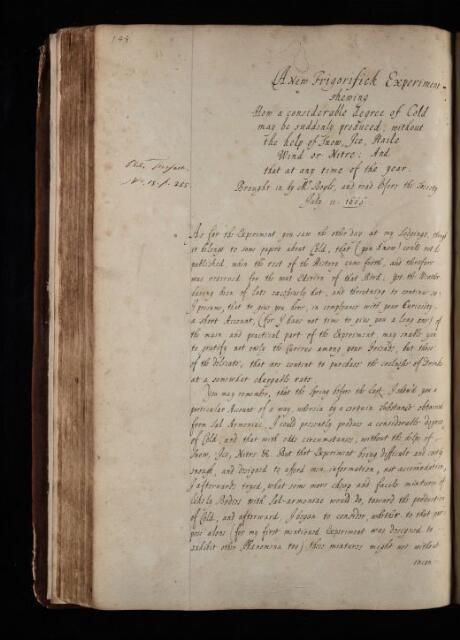 148
A New Frigorifick Experiment
shewing
How a considerable Degree of Cold
may be suddenly produced; without
the help of Snow, Ice, Haile
Wind or Nitre; And
that at any time of the year.
Brought in by Mr. Boyle, and read before the Society
July 11. 1666.
Phil. Transact.
No. 15. p. 255.
As for the Experiment you saw the other day at my Lodgings, though
it belongs to some papers about Cold, that (you know) could not be
published, when the rest of the History came forth, and therefore
was reserved for the next Edition of that Book; yet the Weather
having been of late excessively hot, and threatning to continue so;
I presume, that to give you here, in complyance with your Curiosity,
a short Account, (for I have not time to give you a long one) of
the main and practical part of the Experiment may enable you
to gratify not only the Curious among your Friends, but those
of the Delicate, that are content to purchase the coolness of Drinks
at a somewhat chargeable rate.
You may remember, that the Spring before the last, I shew'd you a
particular Account of a way, wherein by a certain Substance obtained
from Sal Armoniac, I could presently produce a considerable degree
of Cold, and that with odd circumstances, without the help of
Snow, Ice, Nitre &c. But that Experiment being difficult and costly
enough, and designed to afford men information, not accomodation,
I afterwards tryed, what some more cheap and facile mixtures of
likely Bodies with Sal-armoniac would do, toward the production
of Cold, and afterward, I began to consider, whether to that pur-
pose alone (for my first mentioned Experiment was designed to
exhibit other Phænomena too) those mixtures might not without
incon-